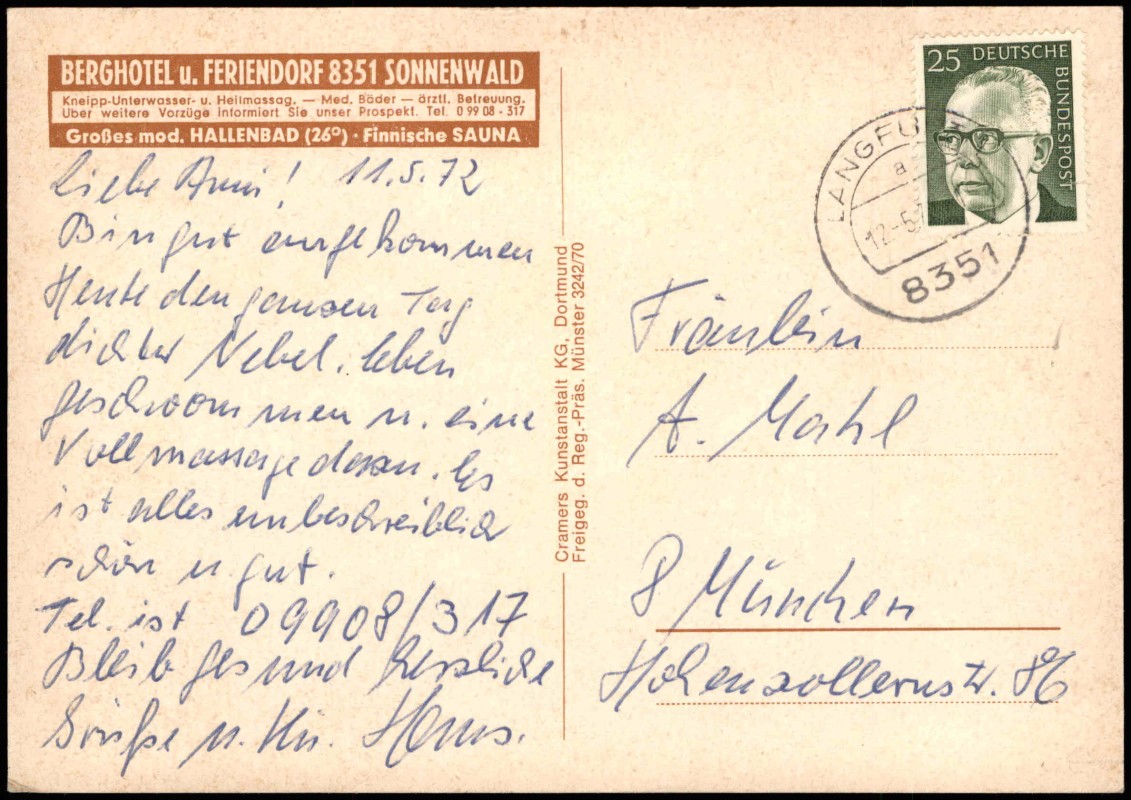 BERGHOTEL u. FERIENDORF 8351 SONNENWALD
Kneipp-Unterwasser- u. Heilmassag. — Med. Bäder — ärztl. Betreuung.
Über weitere Vorzüge informiert Sie unser Prospekt. Tel. 0 99 08 - 317
Großes mod. HALLENBAD (26°) · Finnische SAUNA
Liebe Anni! 11.5.72
Bin gut angekommen
Heute den ganzen Tag
dichter Nebel. Eben
geschwommen u. eine
Vollmassage dazu. Es
ist alles unbeschreiblich
schön u. gut.
Tel. ist 09908/317
Bleib gesund herzliche
Grüße u. Kü. Hans.
Cramers Kunstanstalt KG, Dortmund
Freigeg. d. Reg.-Präs. Münster 3242/70
25 DEUTSCHE BUNDESPOST
LANGFU
a
12.-5.7
8351
Fräulein
A. Mahl
8 München
Hohenzollernstr. 86